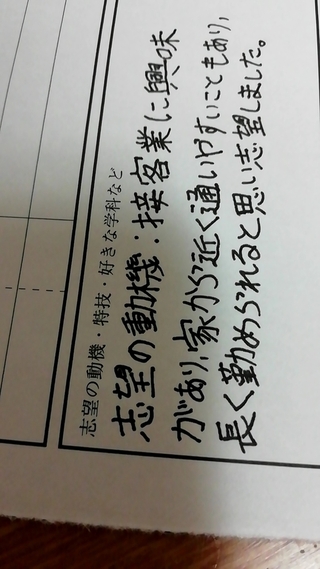 志望の動機・特技・好きな学科など
志望の動機:接客業に興味
があり、家から近く通いやすいこともあり、
長く勤められると思い志望しました。